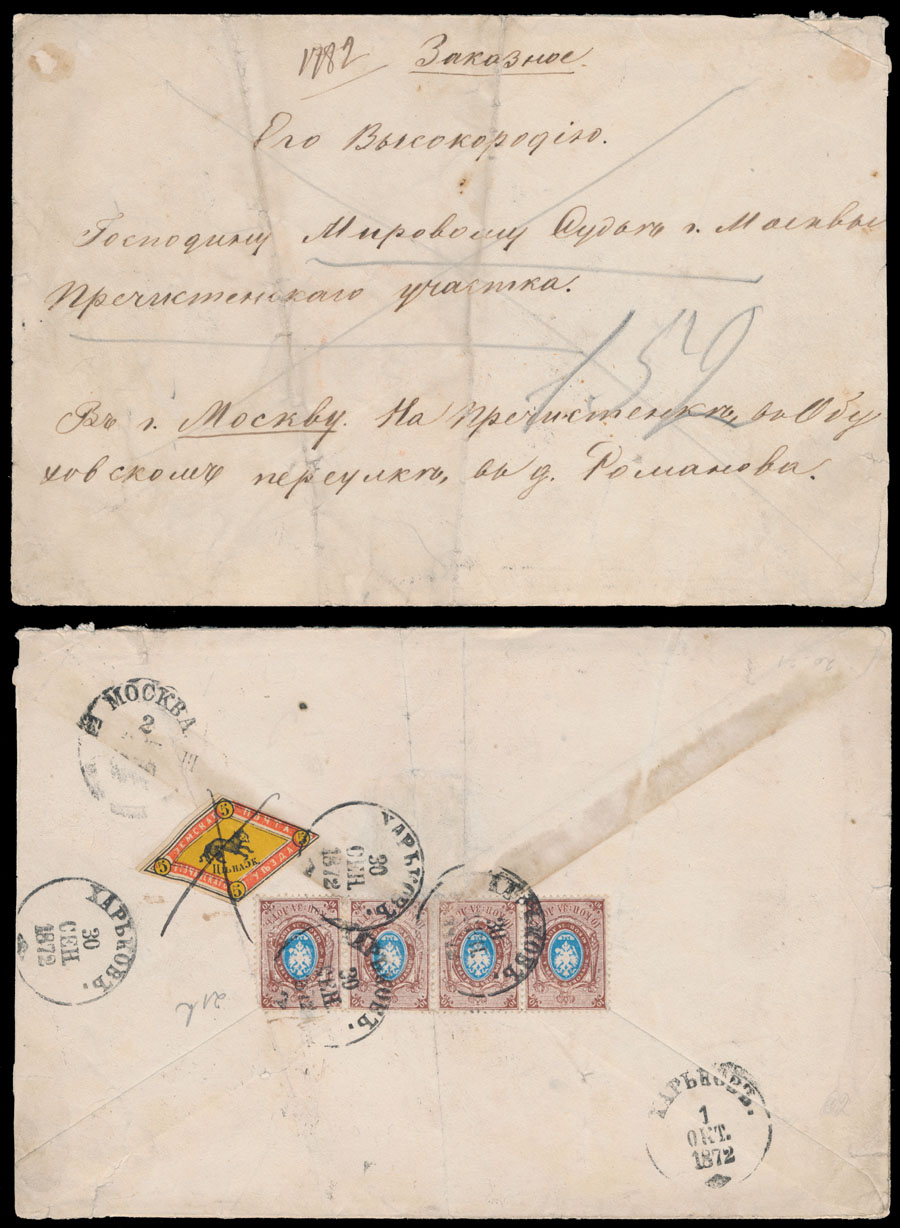 1782 Заказное.
Его Высокородію.
Господину Мировому Судьѣ г. Москвы
Пречистенскаго участка.
152
Въ г. Москву. На Пречистенкѣ, въ Обу
ховскомъ переулкѣ, въ д. Романова.
МОСКВА
2
5 ПОЧТА
ЗЕМСКАЯ 5
5 ЦѢНА 5 К.
УѢЗДА
5
ХАРЬКОВЪ.
30
СЕН.
1872
ХАРЬКОВЪ.
30
СЕН.
1872
ХАРЬКОВЪ.
30
СЕН.
ХАРЬКОВЪ.
ХАРЬКОВЪ.
1
ОКТ.
1872